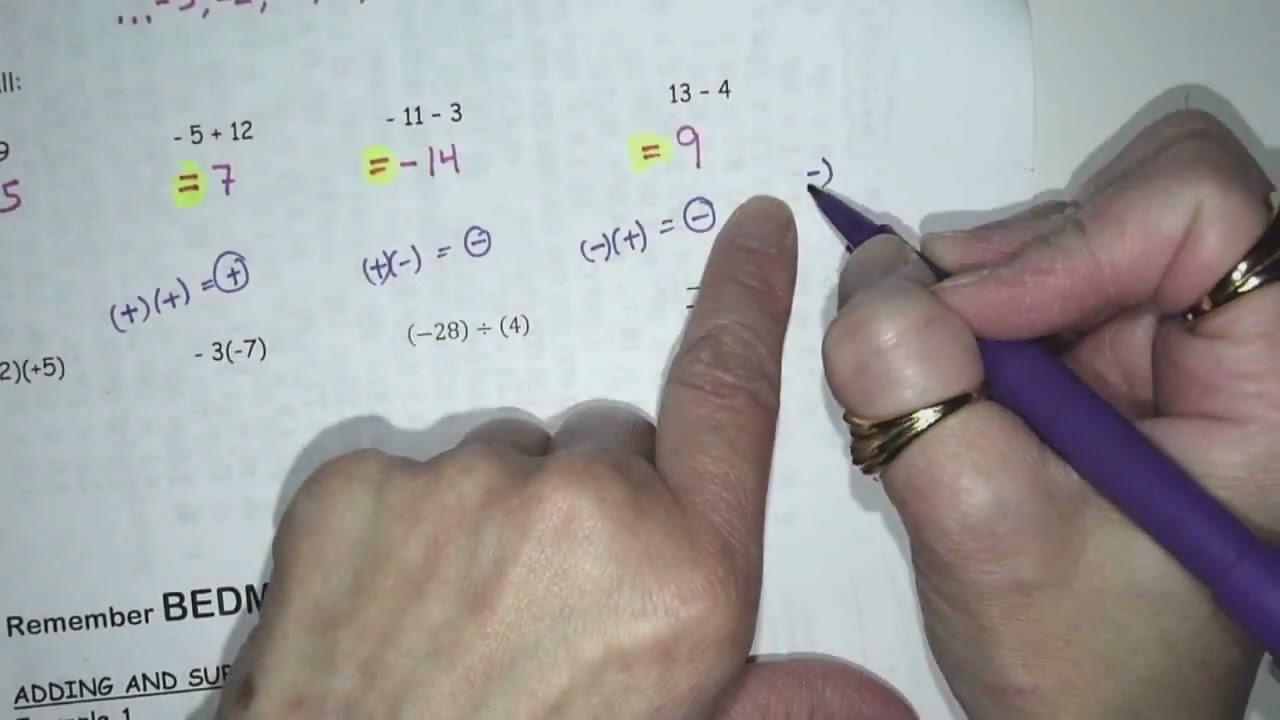 ...-3,-2,
ll:
9 - 5 + 12 - 11 - 3 13 - 4
5 = 7 = - 14 = 9
(+)(+) = + (+)(-) = - (-)(+) = - -)
2)(+5) - 3(-7) (−28) ÷ (4)
Remember BEDM
ADDING AND SU
Example 1